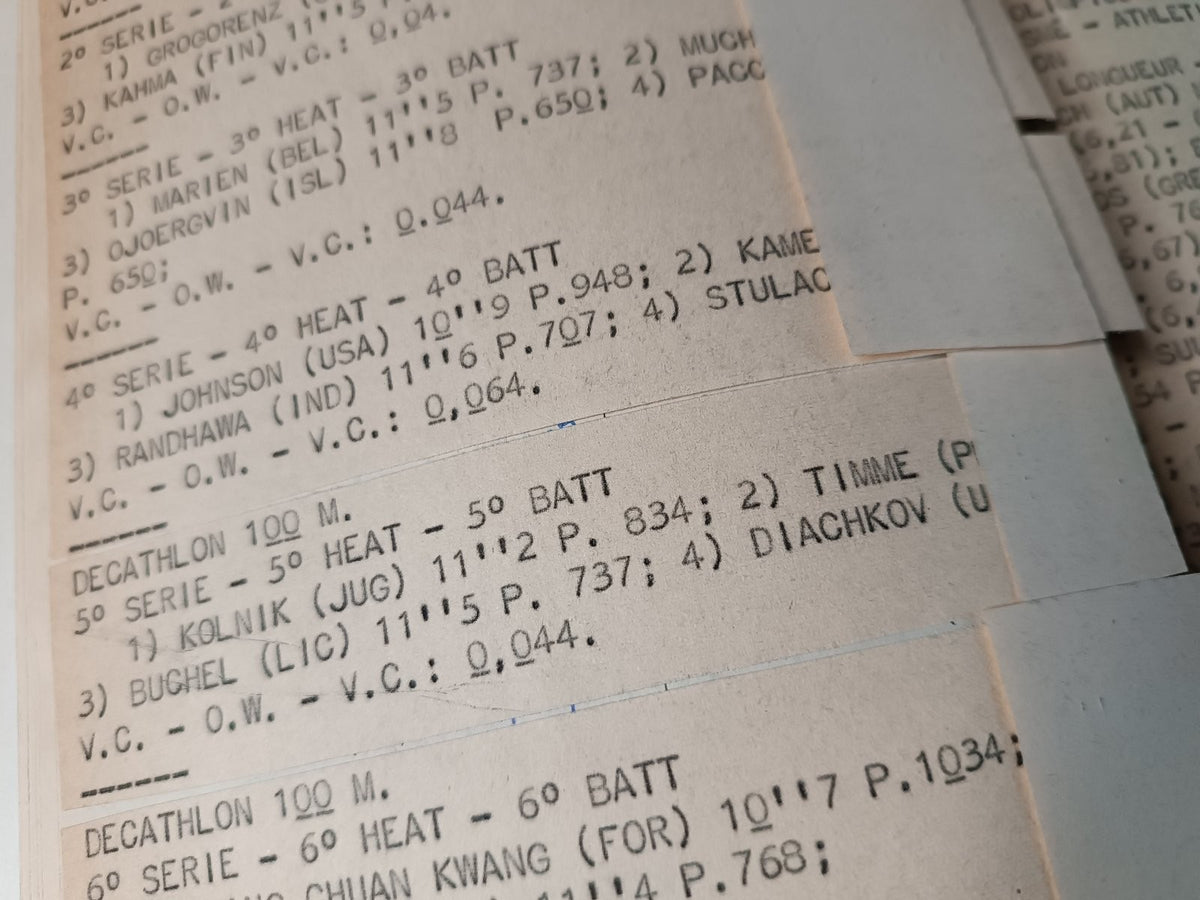 2º SERIE -
1) GROGORENZ
3) KAHMA (FIN) 11''5
V.C. - O.W. - V.C.: 0,04.
------
3º SERIE - 3º HEAT - 3º BATT
1) MARIEN (BEL) 11''5 P. 737; 2) MUCH
3) OJOERGVIN (ISL) 11''8 P.650; 4) PACC
P. 650;
V.C. - O.W. - V.C.: 0.044.
------
4º SERIE - 4º HEAT - 4º BATT
1) JOHNSON (USA) 10''9 P.948; 2) KAME
3) RANDHAWA (IND) 11''6 P.707; 4) STULAC
V.C. - O.W. - V.C.: 0,064.
------
DECATHLON 100 M.
5º SERIE - 5º HEAT - 5º BATT
1) KOLNIK (JUG) 11''2 P. 834; 2) TIMME (P
3) BUCHEL (LIC) 11''5 P. 737; 4) DIACHKOV (U
V.C. - O.W. - V.C.: 0,044.
------
DECATHLON 100 M.
6º SERIE - 6º HEAT - 6º BATT
CHUAN KWANG (FOR) 10''7 P.1034;
11''4 P.768;
- ATHLET
LONGUEUR -
(AUT)
(6,21 -
,81);
(GRE
P. 76
6,67)
6,
(6,
; SU
54 P